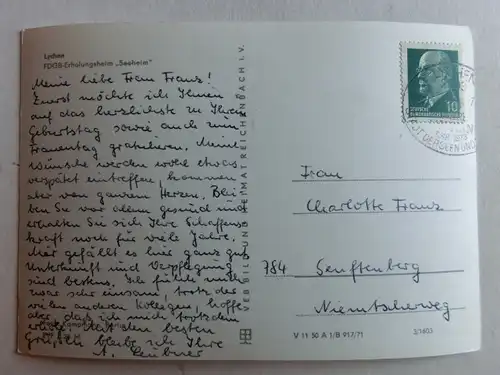 Lychen
FDGB-Erholungsheim „Seeheim"
Meine liebe Frau Franz!
Zuerst möchte ich Ihnen
auf das herzlichste zu Ihrem
Geburtstag sowie auch zum
Frauentag gratulieren. Meine
wünsche werden wohl etwas
verspätet eintreffen, kommen
aber von ganzem Herzen. Blei-
ben Sie vor allem gesund und
erhalten Sie sich Ihre Schaffens
kraft noch für viele Jahre.
Mir gefällt es hier ganz gut
Unterkunft und Verpflegung
sind bestens. Ich fühle mich
zwar sehr einsam, trotz der
vielen anderen Kollegen, hoffe
aber, daß ich mich trotzdem
erhole. Mit den besten
Grüßen bleibe ich Ihre
A. Leubner
VEB BILD UND HEIMAT REICHENBACH I. V.
DEUTSCHE
DEMOKRATISCHE REPUBLIK
10
Frau
Charlotte Franz
784 Senftenberg
Niemtscherweg
V 11 50 A 1/B 957/71
3/1603